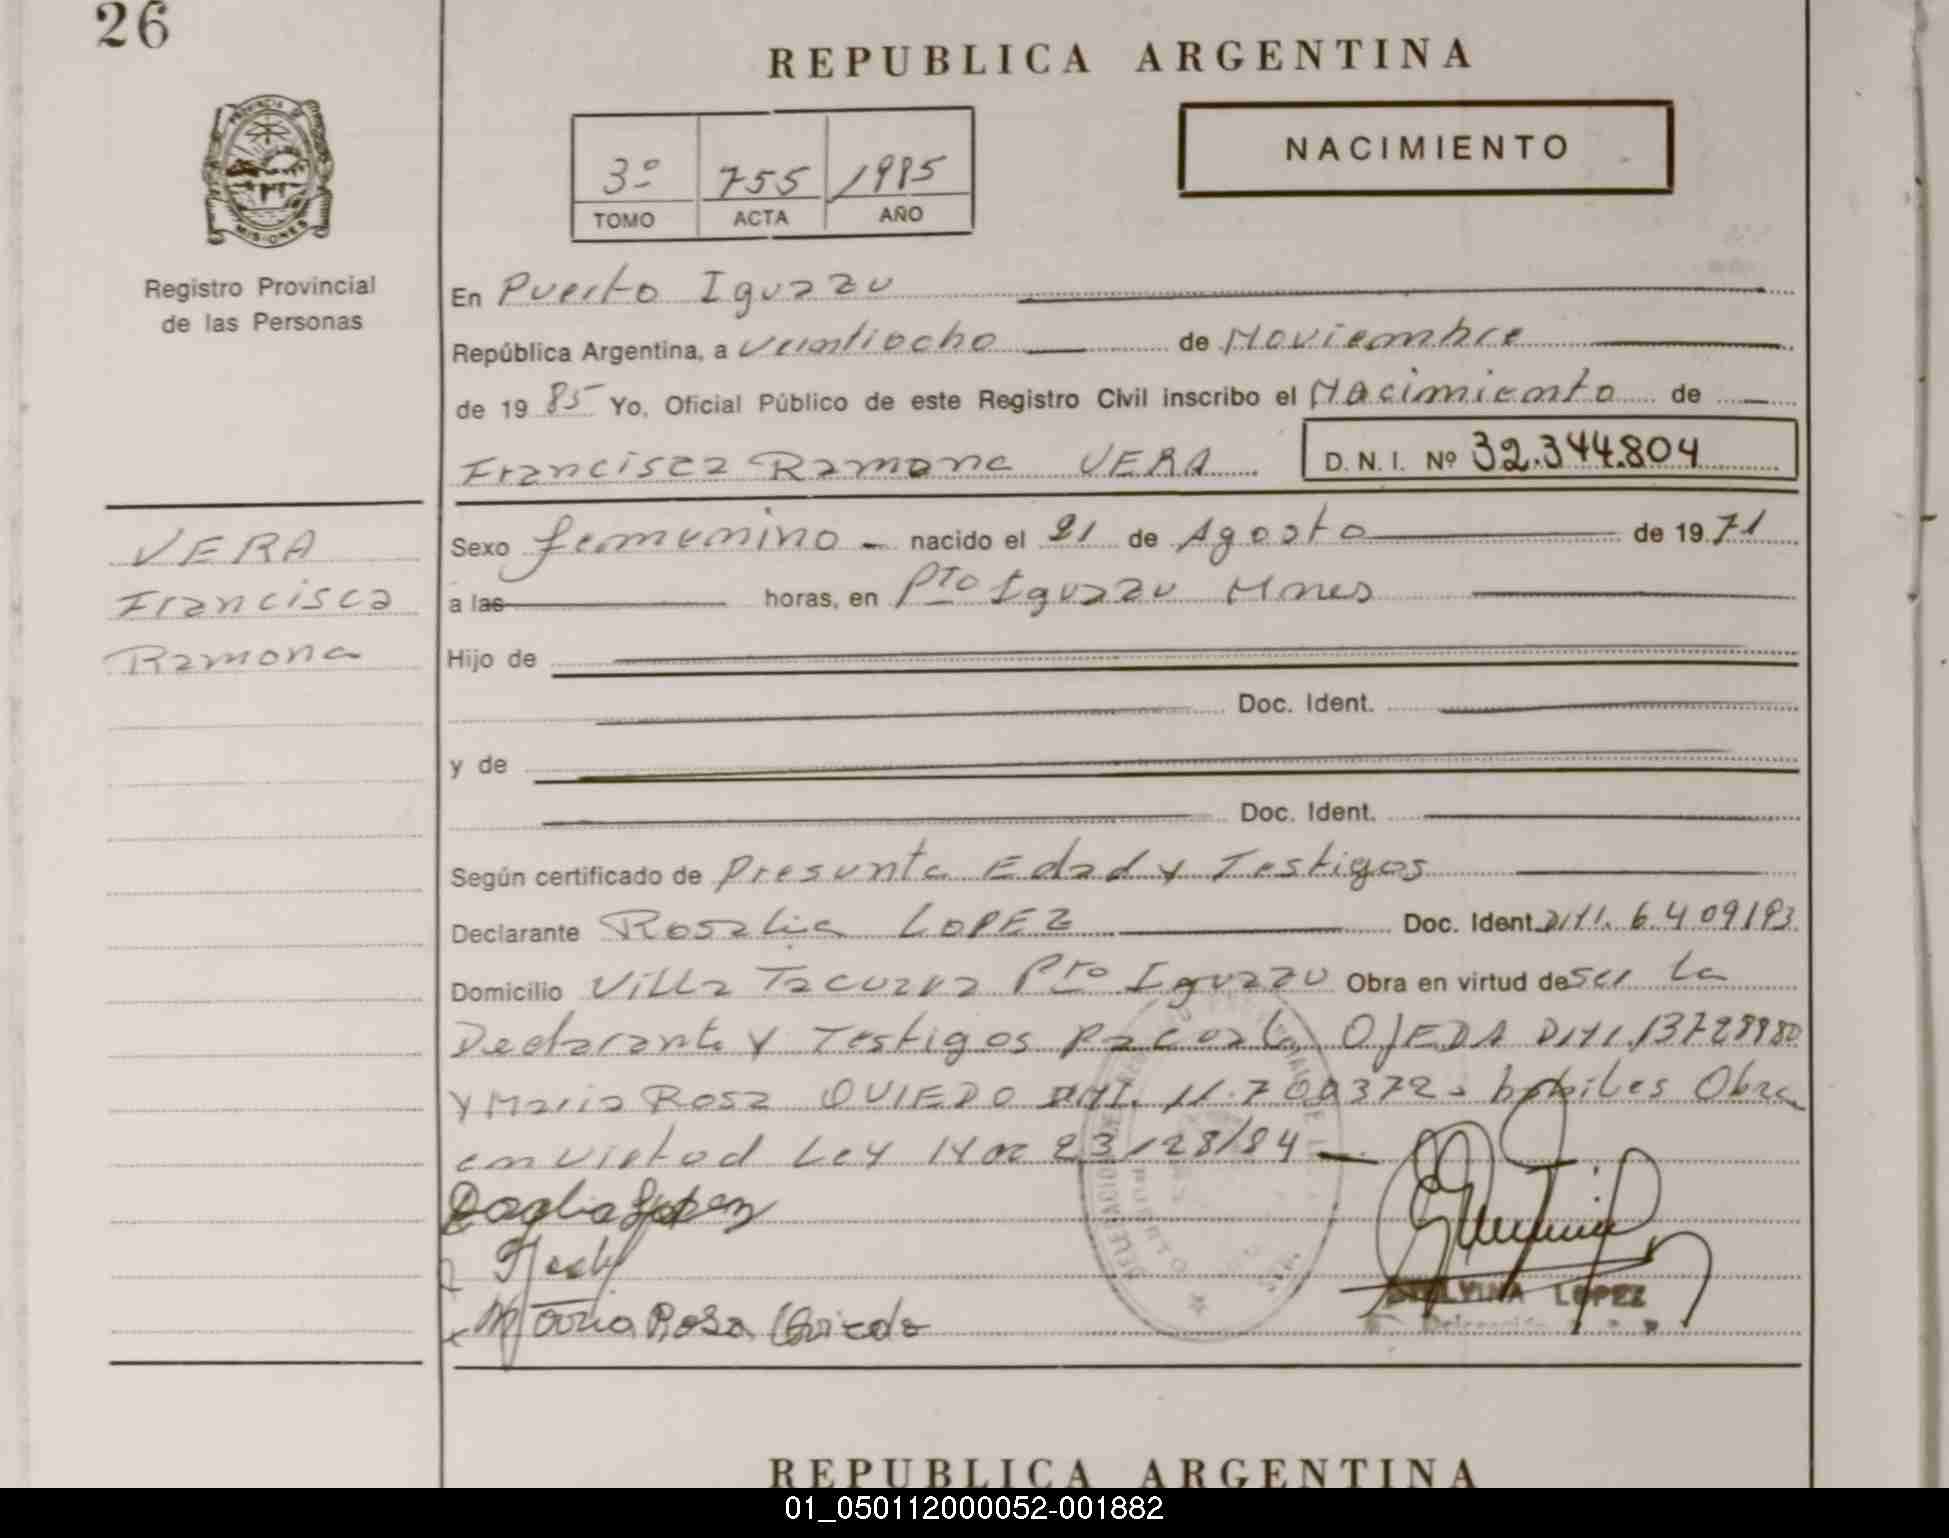 26
REPUBLICA ARGENTINA
NACIMIENTO
3º 755 1985
TOMO ACTA AÑO
PROVINCIA DE
MISIONES
Registro Provincial
de las Personas
En Puerto Iguazu
República Argentina, a veintiocho de Noviembre
de 19 85 Yo, Oficial Público de este Registro Civil inscribo el Nacimiento de
Francisca Ramona VERA D. N. I. Nº 32.344.804
VERA
Francisca
Ramona
Sexo femenino - nacido el 21 de Agosto de 19 71
a las horas, en Pto Iguazu Mnes
Hijo de
Doc. Ident.
y de
Doc. Ident.
Según certificado de Presunta Edad y Testigos
Declarante Rosalia LOPEZ Doc. Ident. DNI. 6.409193
Domicilio Villa Tacuara Pto Iguazu Obra en virtud de ser la
Declarante y Testigos OJEDA DNI. 13728980
y Maria Rosa OVIEDO DNI. 11.700372 - habiles Obra
en virtud Ley Nac 23/28/84
Lopez
Maria Rosa Oviedo
LOPEZ
REPUBLICA ARGENTINA
01_050112000052-001882